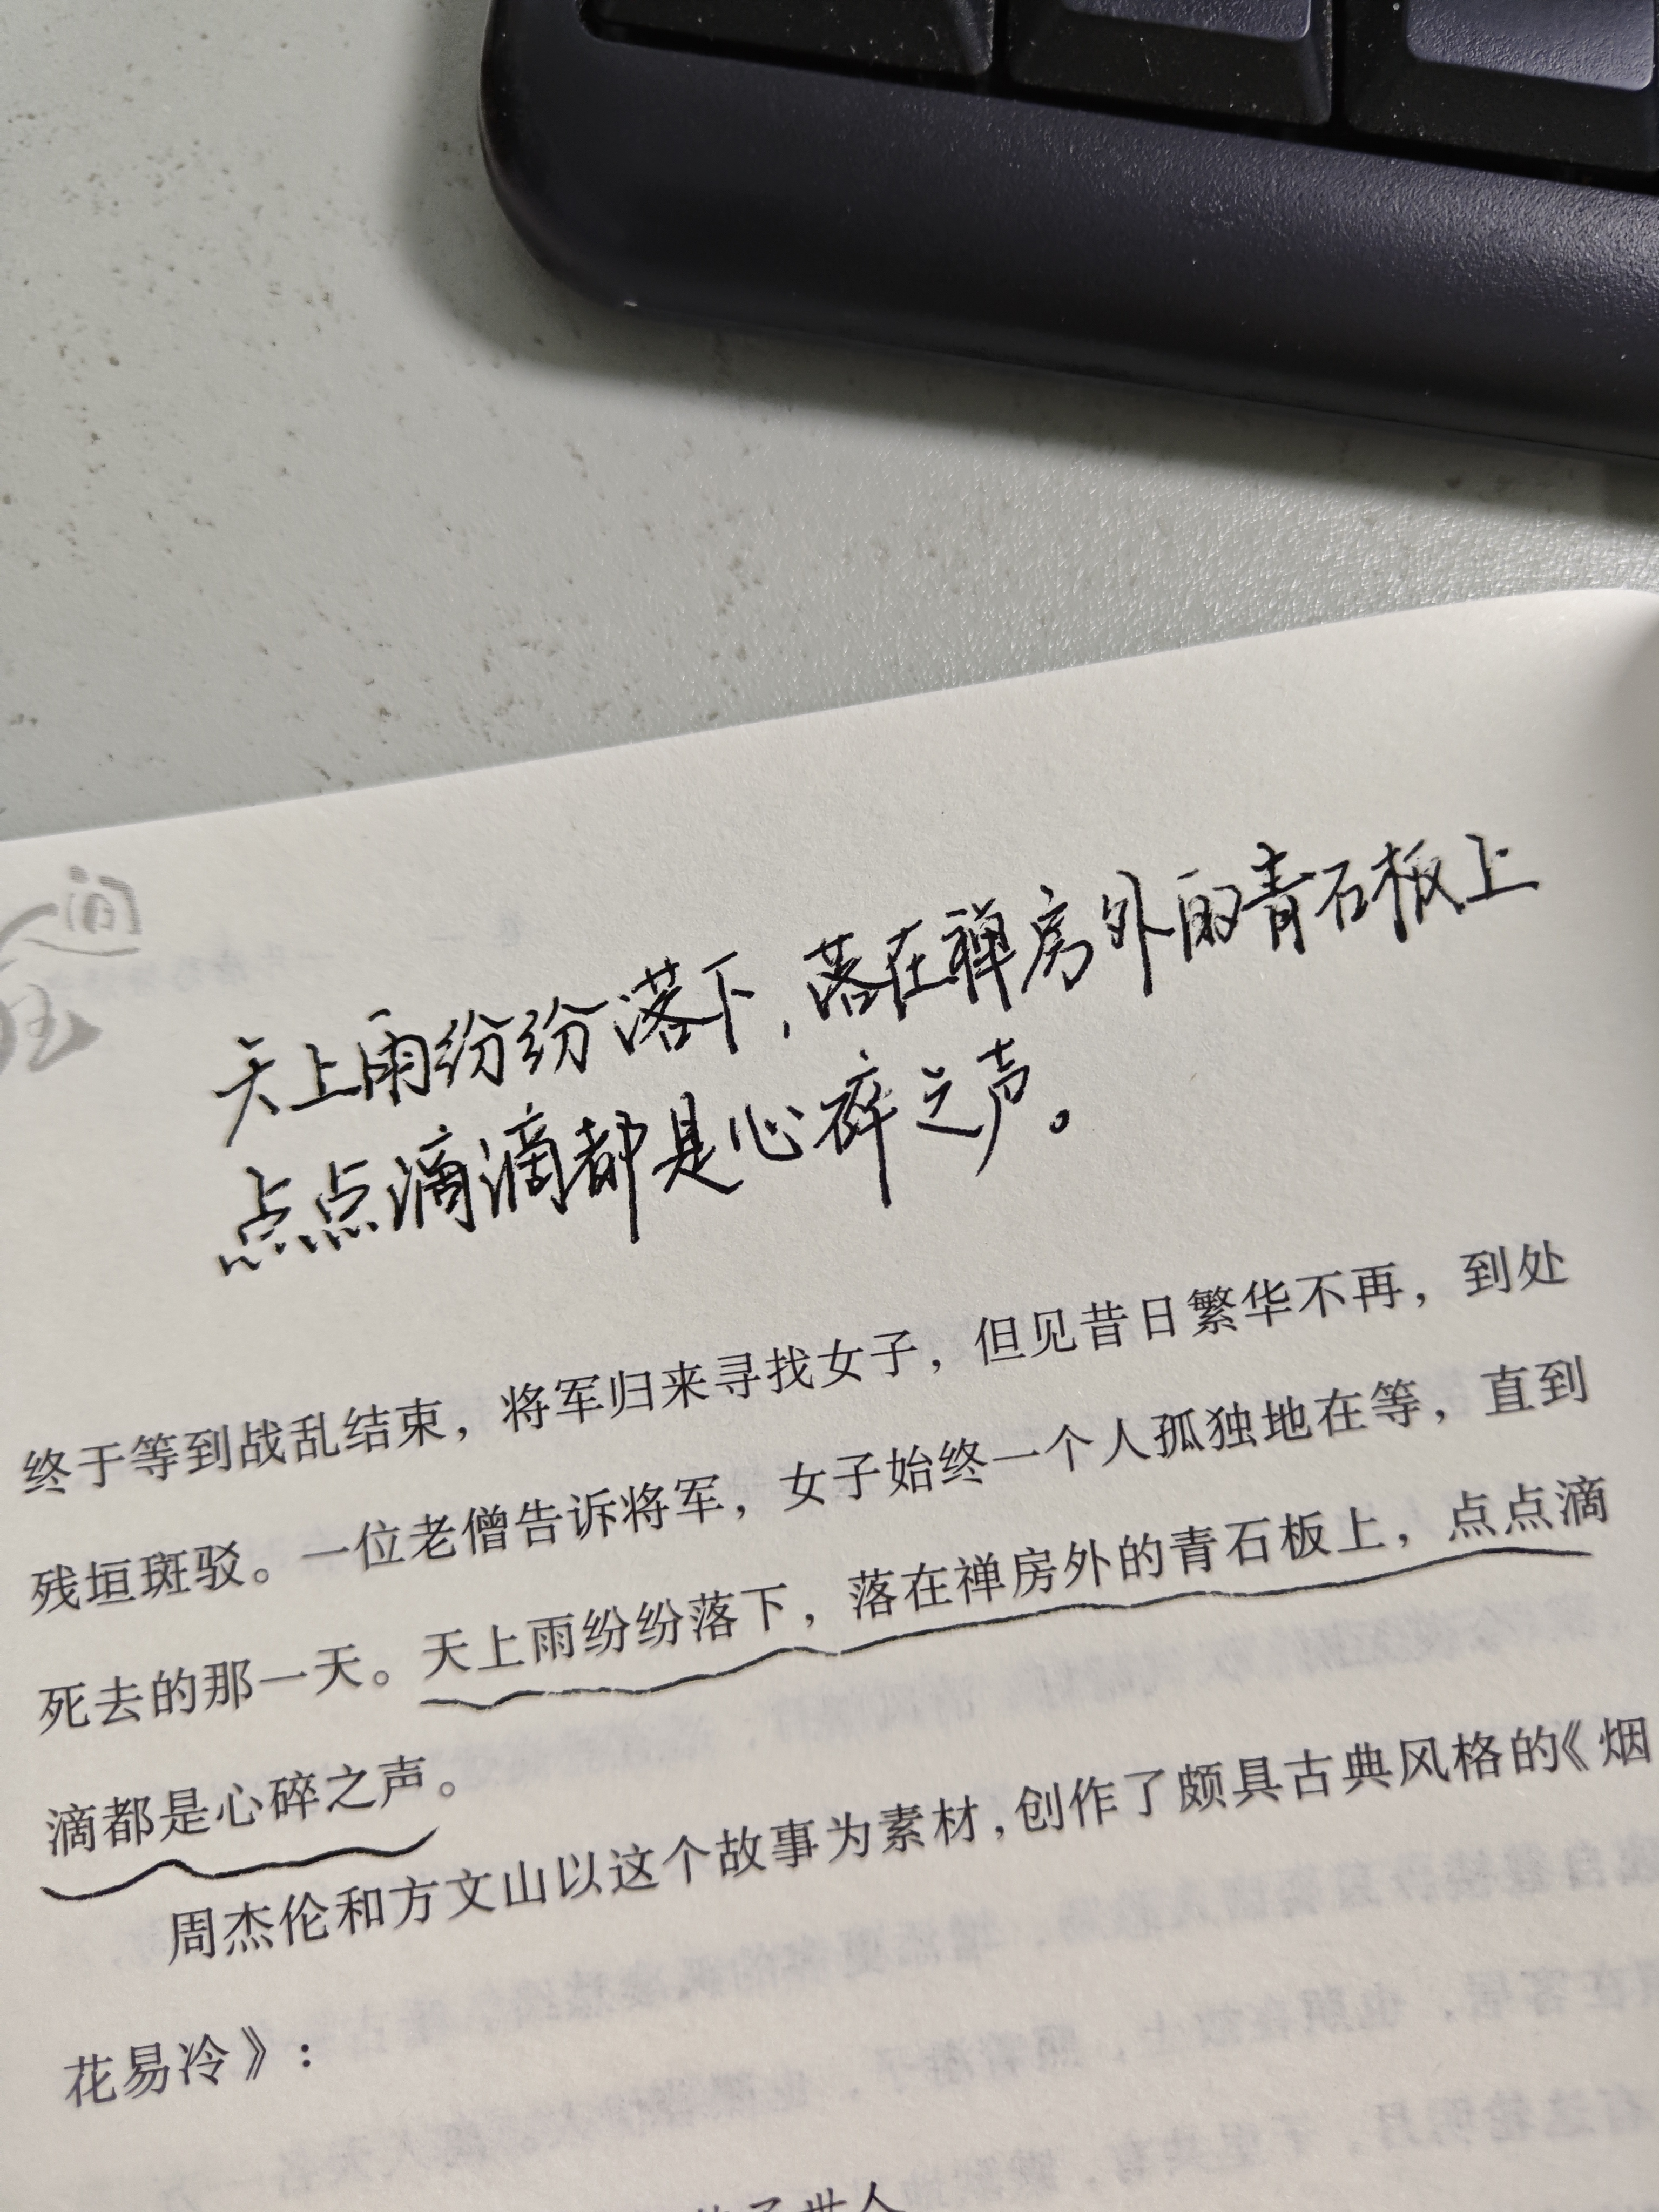 间
天上雨纷纷落下，落在禅房外的青石板上
点点滴滴都是心碎之声。
终于等到战乱结束，将军归来寻找女子，但见昔日繁华不再，到处
残垣斑驳。一位老僧告诉将军，女子始终一个人孤独地在等，直到
死去的那一天。天上雨纷纷落下，落在禅房外的青石板上，点点滴
滴都是心碎之声。
周杰伦和方文山以这个故事为素材，创作了颇具古典风格的《烟
花易冷》：